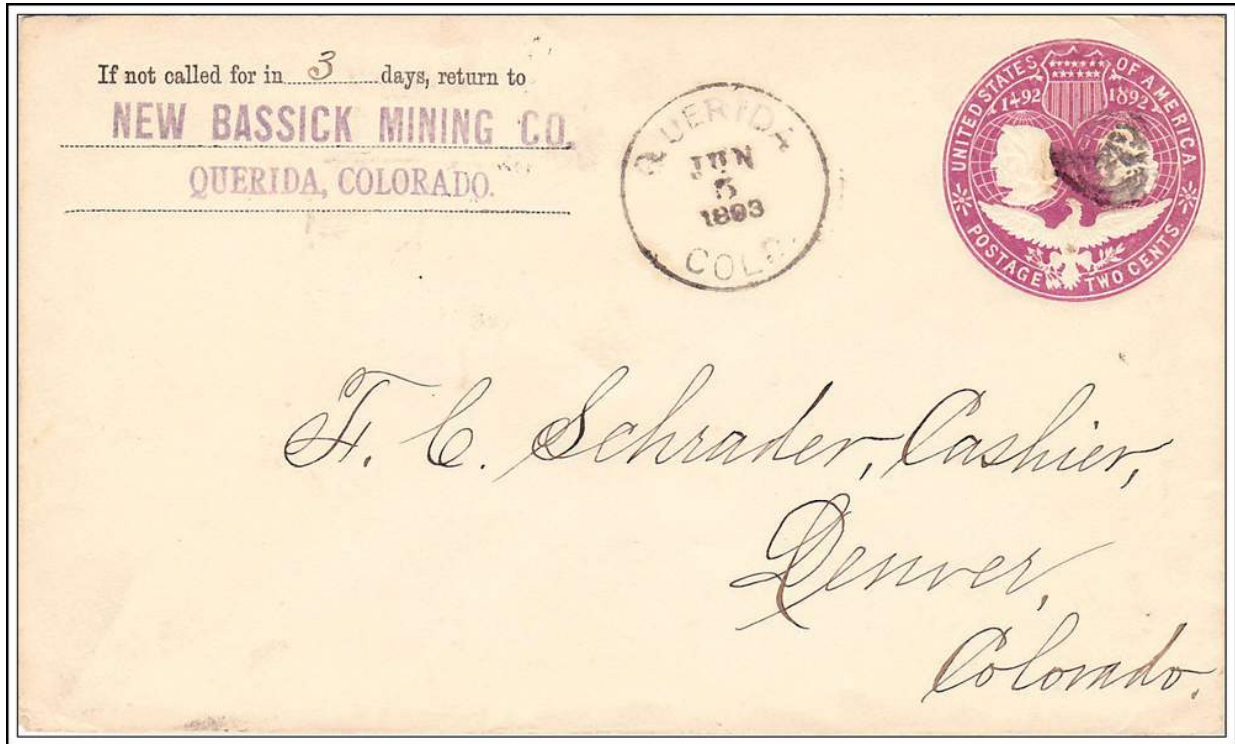 If not called for in 3 days, return to
NEW BASSICK MINING CO.
QUERIDA, COLORADO.
QUERIDA
JUN
5
1893
COLO.
UNITED STATES OF AMERICA
1492 1892
POSTAGE TWO CENTS.
F. C. Schrader, Cashier,
Denver,
Colorado.